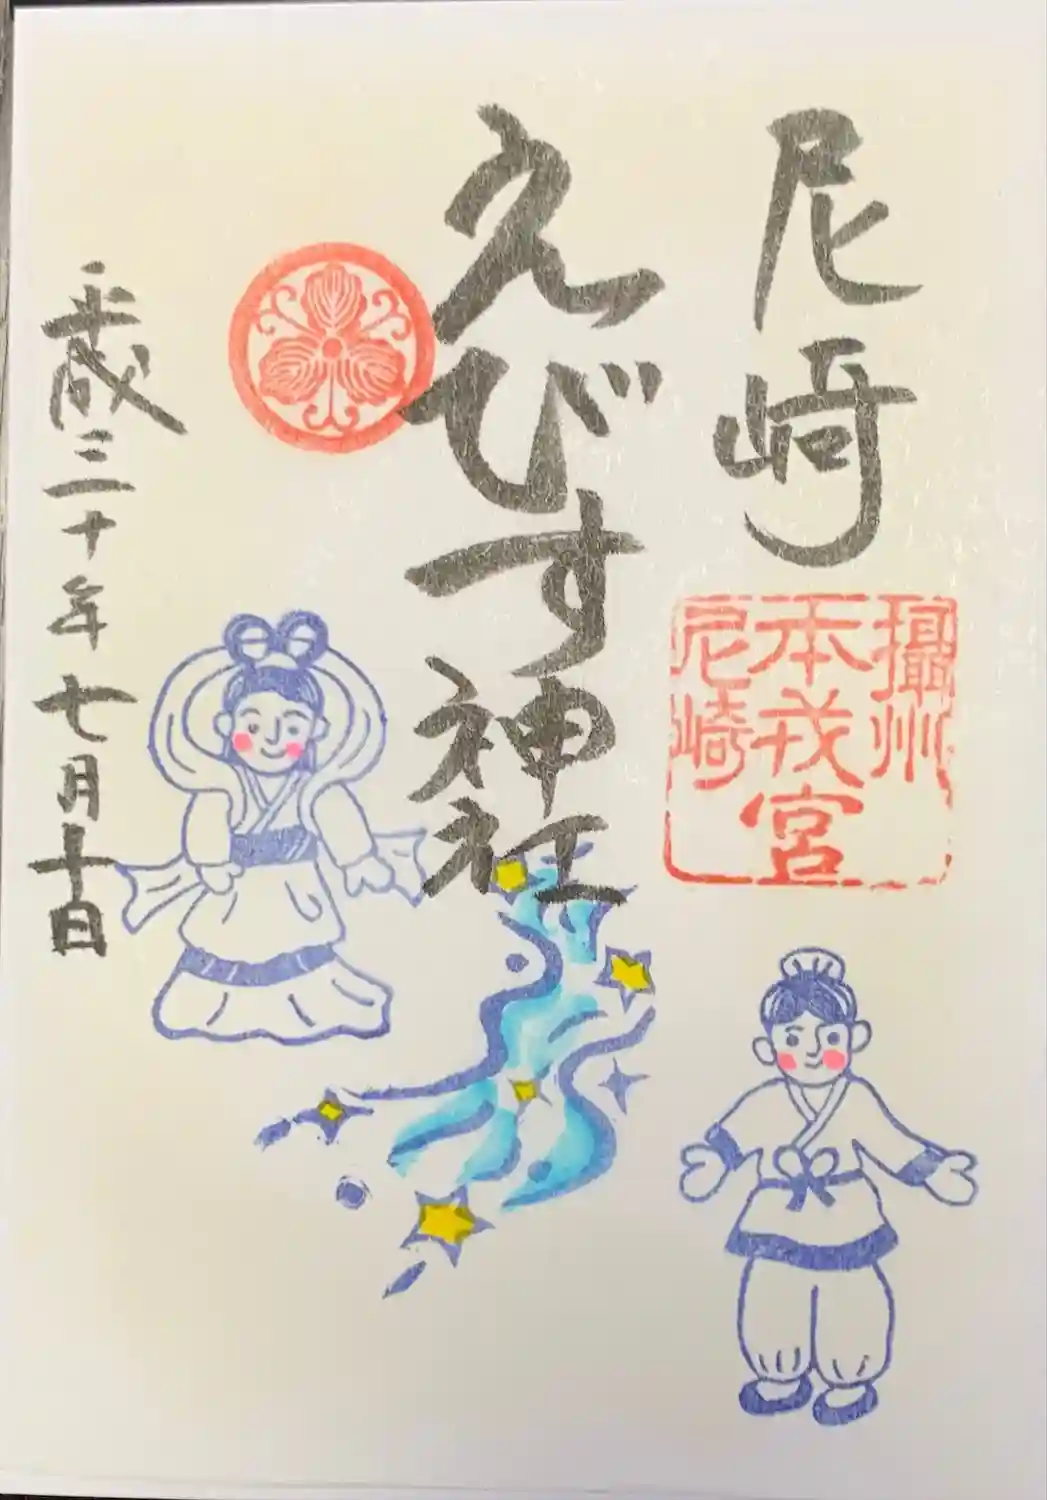 尼崎
攝州
本戎宮
尼崎
えびす神社
平成三十年七月十日